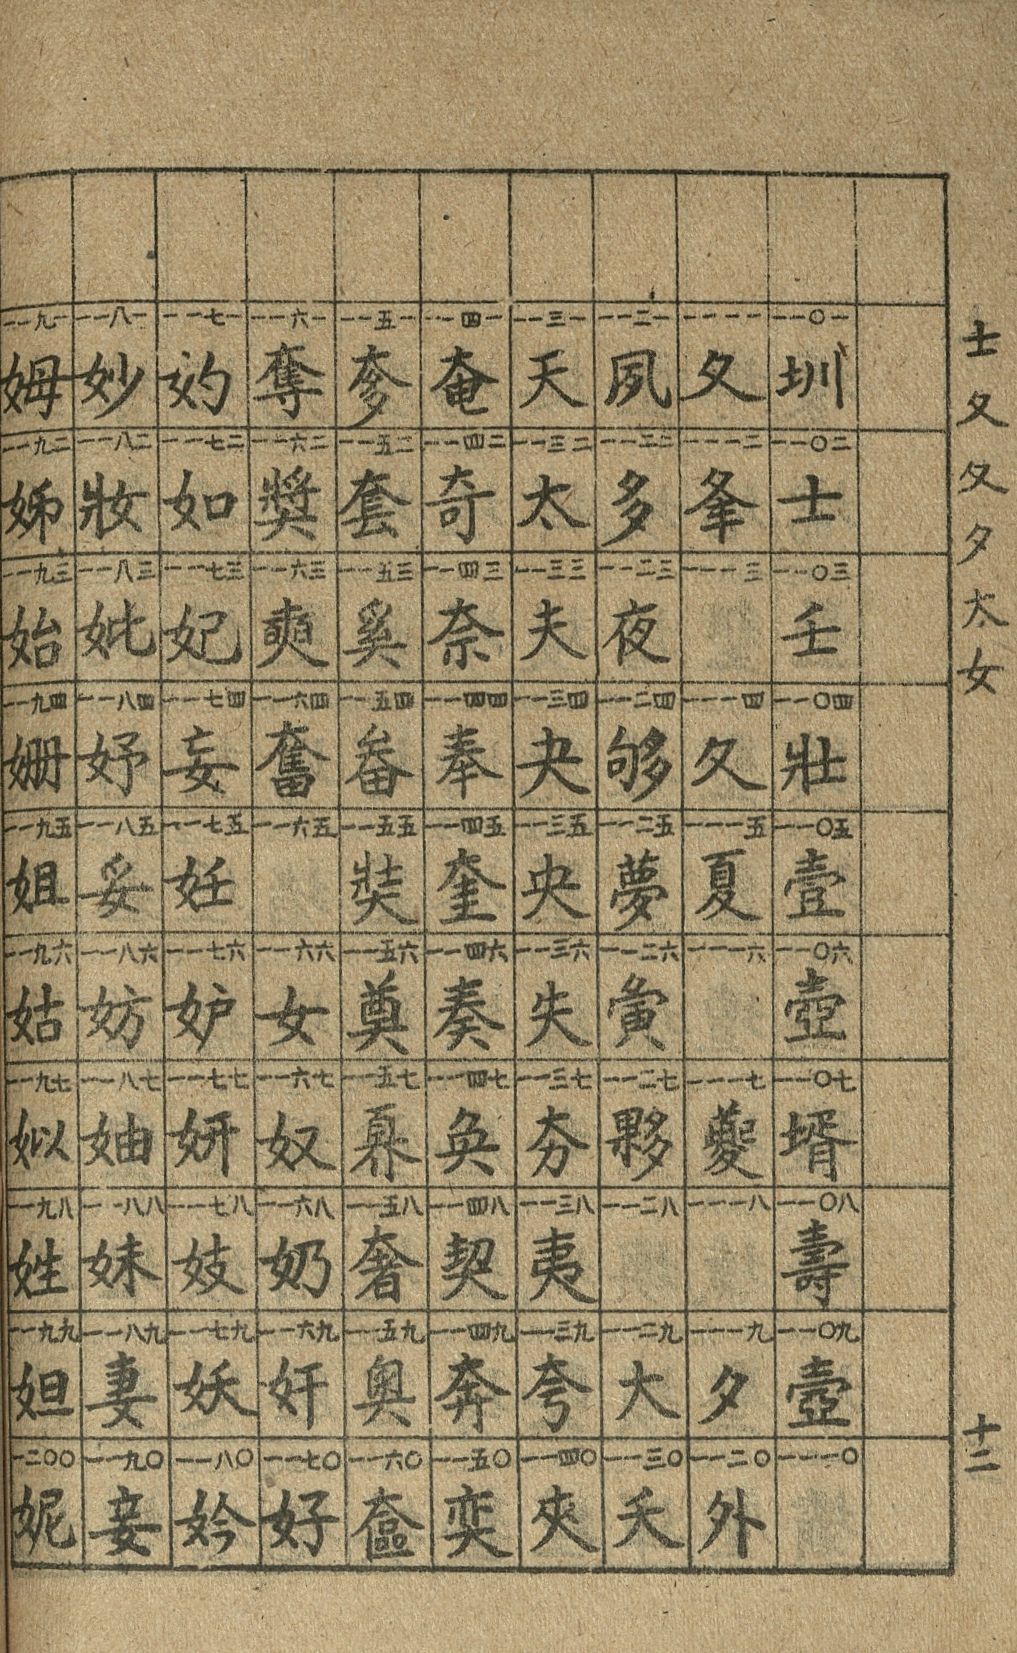 士夂夊夕太女
十二
一一〇一 圳
一一〇二 士
一一〇三 壬
一一〇四 壯
一一〇五 壹
一一〇六 壺
一一〇七 壻
一一〇八 壽
一一〇九 壼
一一一〇
一一一一 夂
一一一二 夆
一一一三
一一一四 夊
一一一五 夏
一一一六
一一一七 夔
一一一八
一一一九 夕
一一二〇 外
一一二一 夙
一一二二 多
一一二三 夜
一一二四 够
一一二五 夢
一一二六 夤
一一二七 夥
一一二八
一一二九 大
一一三〇 夭
一一三一 天
一一三二 太
一一三三 夫
一一三四 夬
一一三五 央
一一三六 失
一一三七 夯
一一三八 夷
一一三九 夸
一一四〇 夾
一一四一 奄
一一四二 奇
一一四三 奈
一一四四 奉
一一四五 奎
一一四六 奏
一一四七 奐
一一四八 契
一一四九 奔
一一五〇 奕
一一五一 奓
一一五二 套
一一五三 奚
一一五四 畚
一一五五 奘
一一五六 奠
一一五七 奡
一一五八 奢
一一五九 奧
一一六〇 奩
一一六一 奪
一一六二 奬
一一六三 奭
一一六四 奮
一一六五
一一六六 女
一一六七 奴
一一六八 奶
一一六九 奸
一一七〇 好
一一七一 妁
一一七二 如
一一七三 妃
一一七四 妄
一一七五 妊
一一七六 妒
一一七七 妍
一一七八 妓
一一七九 妖
一一八〇 妗
一一八一 妙
一一八二 妝
一一八三 妣
一一八四 妤
一一八五 妥
一一八六 妨
一一八七 妯
一一八八 妹
一一八九 妻
一一九〇 妾
一一九一 姆
一一九二 姊
一一九三 始
一一九四 姍
一一九五 姐
一一九六 姑
一一九七 姒
一一九八 姓
一一九九 妲
一二〇〇 妮